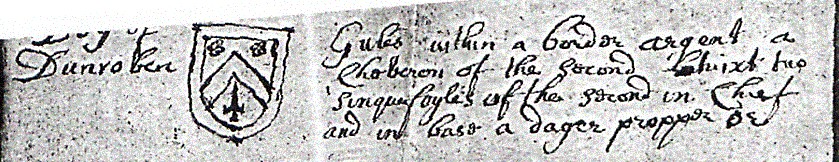 Dunroben
Gules within a border argent a
Cheveron of the second betwixt two
Sinquefoyles of the second in Chief
and in base a dager propper or